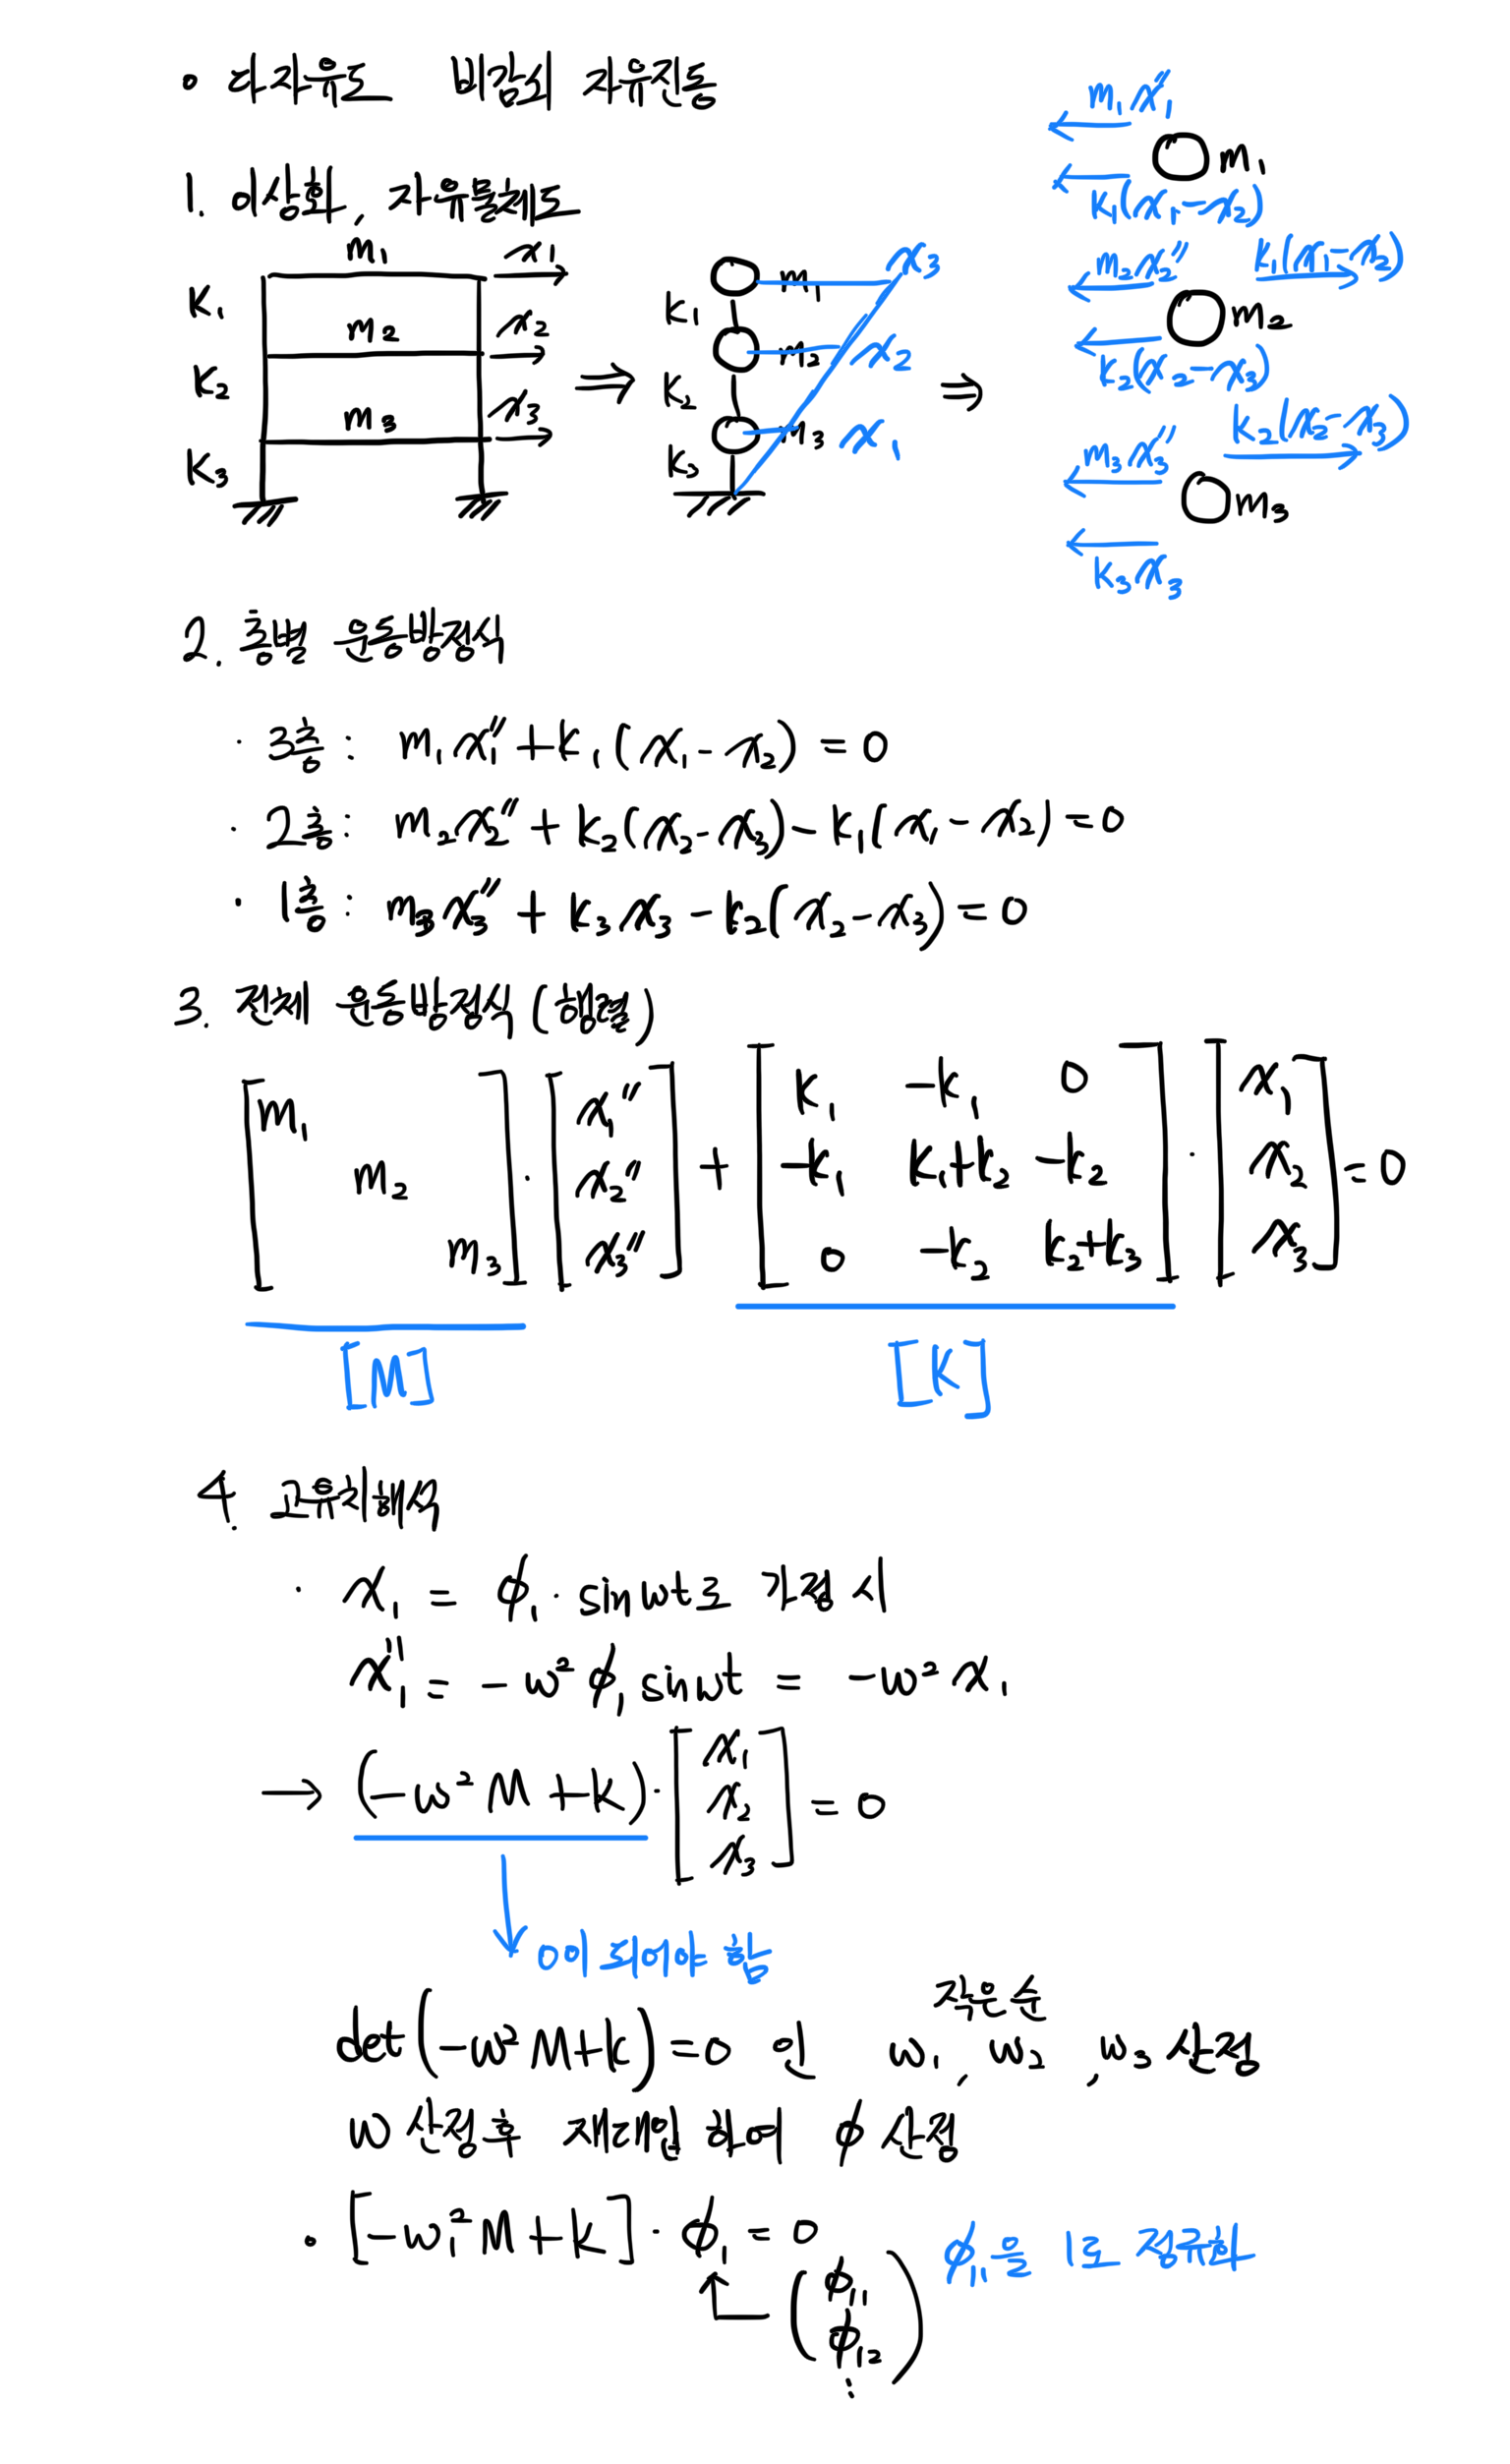 • 다자유도 비감쇠 자유진동
1. 이상화, 자유물체도
m₁ x₁
k₁
m₂ x₂
k₂
m₃ x₃
k₃
⇒
m₁ x₃
k₁
m₂ x₂
k₂
m₃ x₁
k₃
⇒
m₁x₁''
m₁
k₁(x₁-x₂)
m₂x₂'' k₁(x₁-x₂)
m₂
k₂(x₂-x₃)
m₃x₃'' k₂(x₂-x₃)
m₃
k₃x₃
2. 층별 운동방정식
· 3층: m₁x₁''+k₁(x₁-x₂)=0
· 2층: m₂x₂''+k₂(x₂-x₃)-k₁(x₁-x₂)=0
· 1층: m₃x₃''+k₃x₃-k₂(x₂-x₃)=0
3. 전체 운동방정식(행렬)
[m₁ m₂ m₃]·[x₁'' x₂'' x₃'']+[k₁ -k₁ 0 -k₁ k₁+k₂ -k₂ 0 -k₂ k₂+k₃]·[x₁ x₂ x₃]=0
[M] [K]
4. 고유치해석
· x₁ = ϕ₁·sinwt로 가정 시
x₁''= -w²ϕ₁sinwt = -w²x₁
→ (-w²M+k)·[x₁ x₂ x₃]=0
0이 되어야 함
작은 순
det(-w²M+k)=0 인 w₁, w₂, w₃ 산정
w 산정 후 재대입 하여 ϕ 산정
• [-w₁²M+k]·ϕ₁=0
(ϕ₁₁ ϕ₁₂ ⋮) ϕ₁₁을 1로 정규화